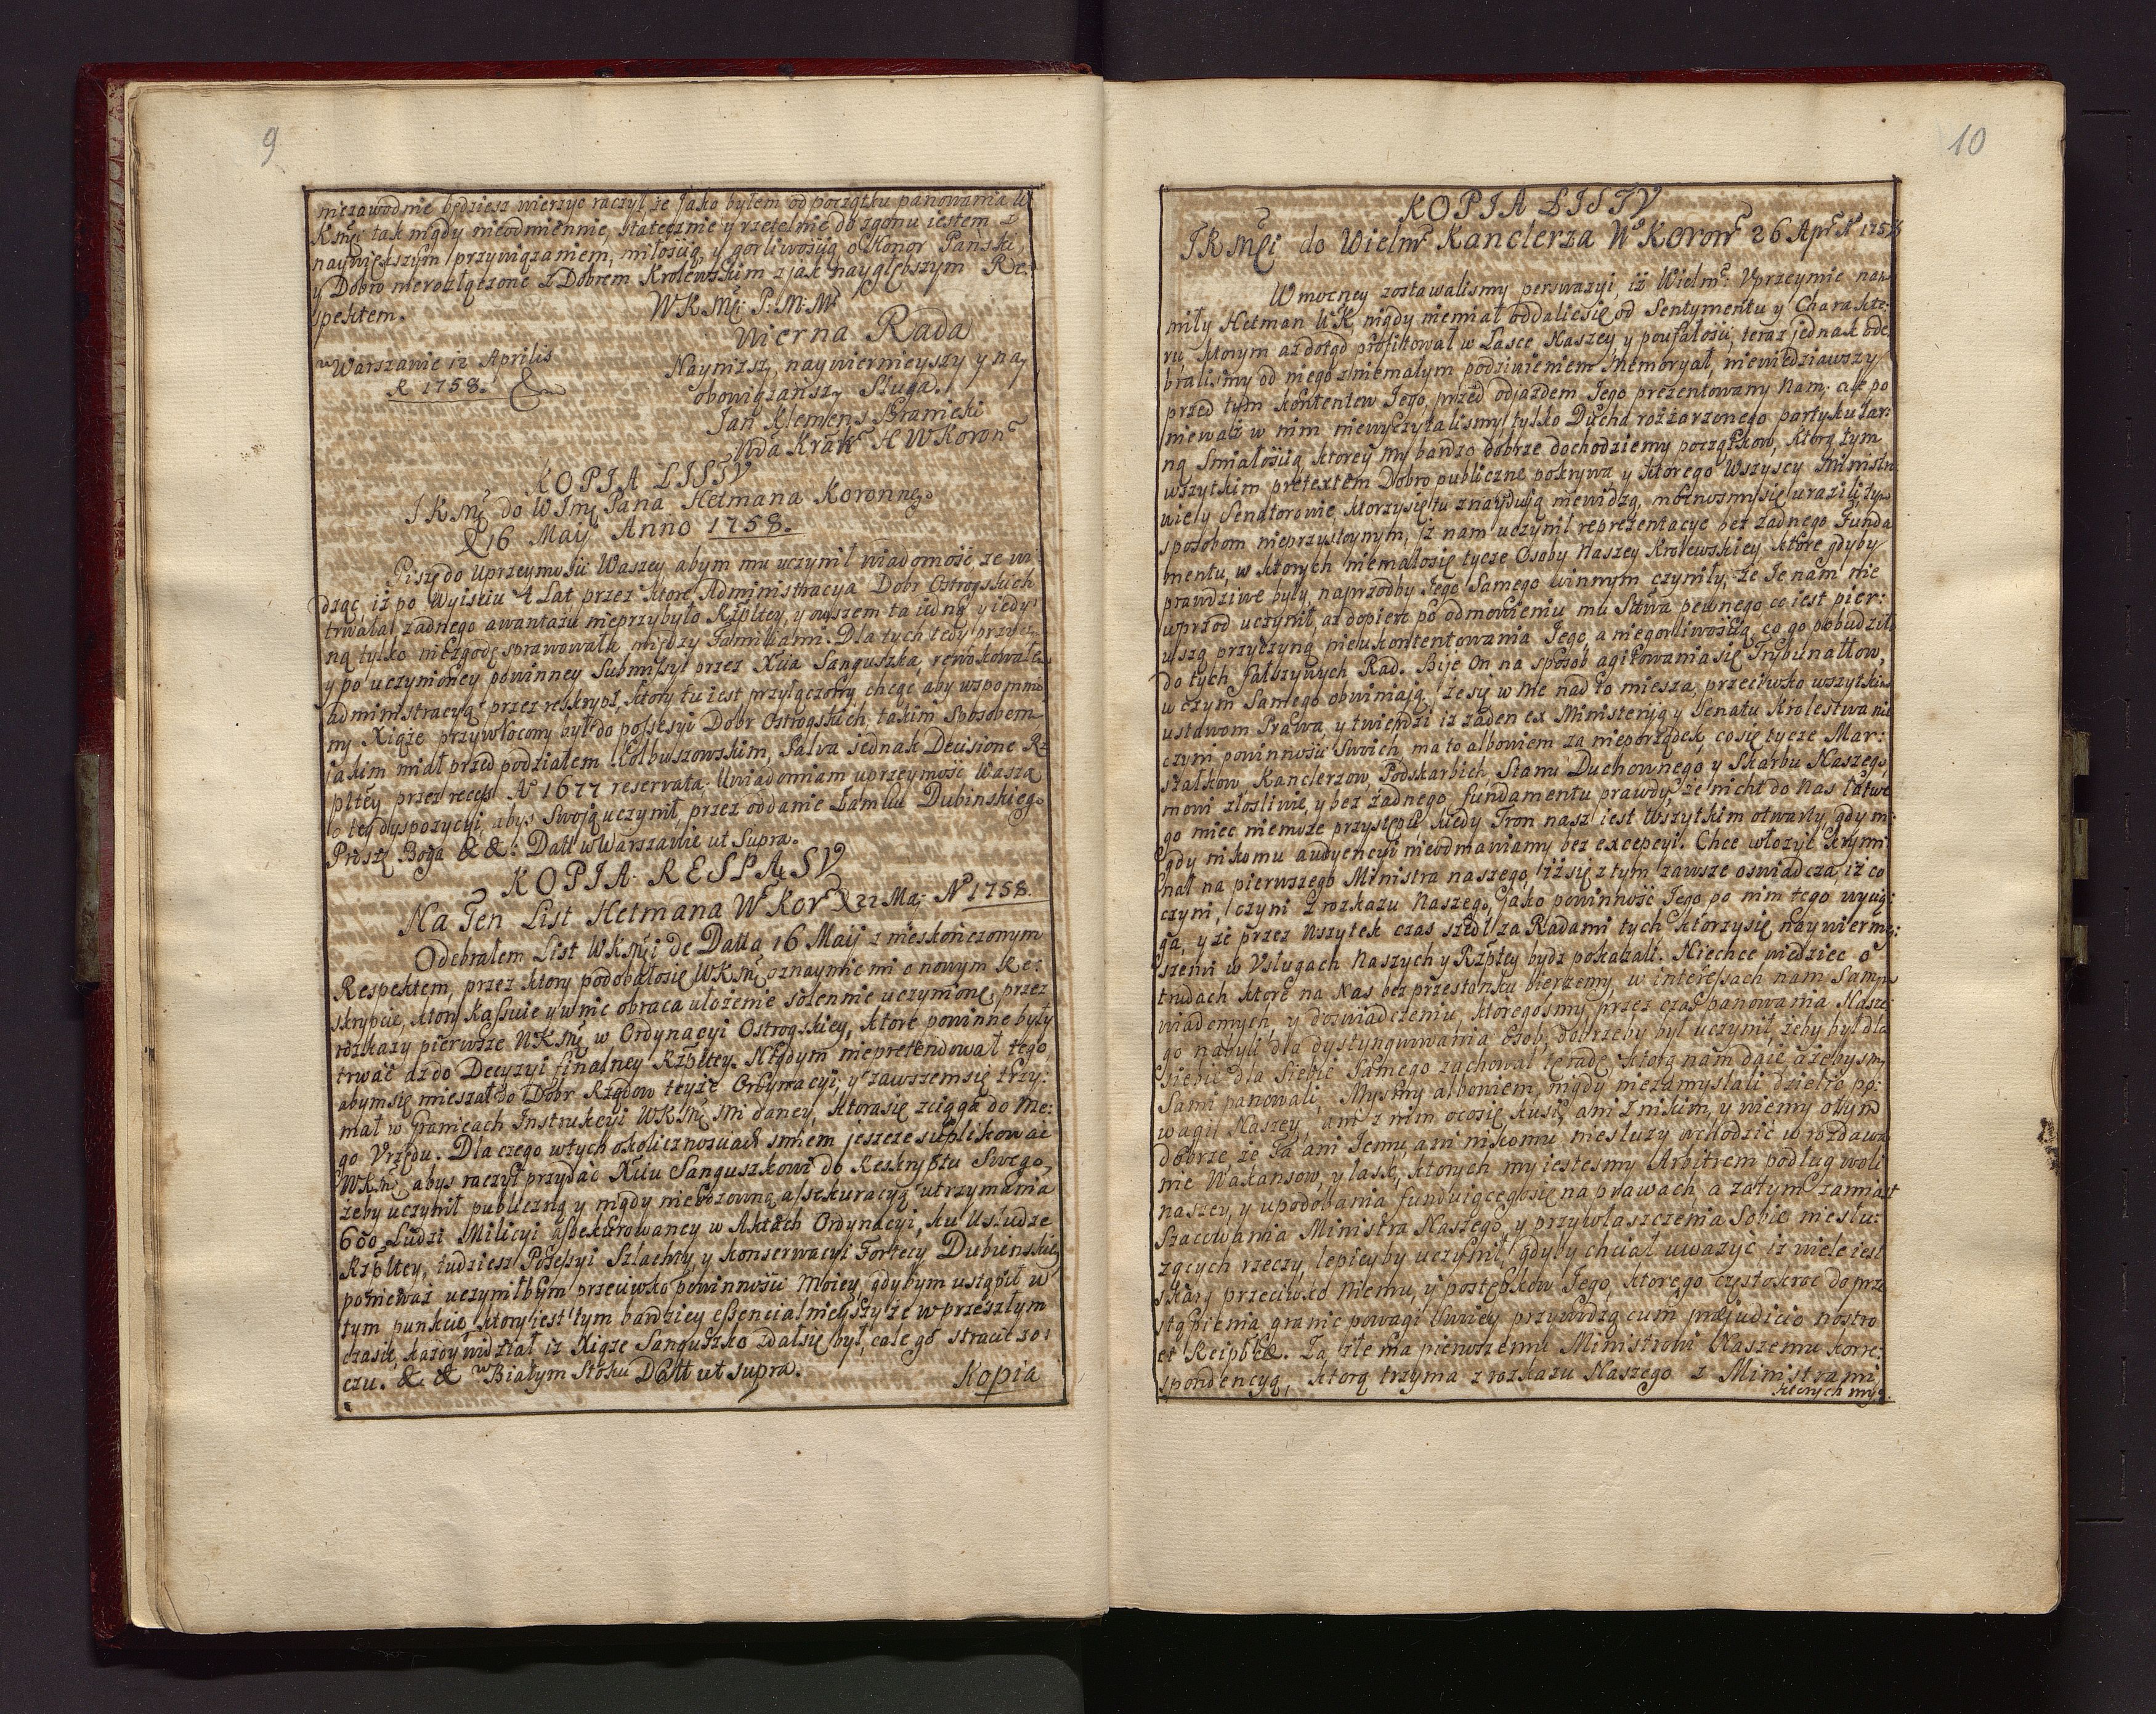 9
niezawodnie będziesz wierzyc raczył, że jako byłem od początku panowania W
KMci tak nigdy nieodmiennie, statecznie y rzetelnie do zgonu iestem z
naywiększym przywiązaniem, miłością, y gorliwością o Honor Panski,
y Dobro nierozłączone z Dobrem Krolewskim z jak naygłębszym Re-
spektem.
WKMci P: M: Mo
Wierna Rada
w Warszawie 12 Aprilis
R 1758.
Nayniższy, naywiernieyszy y nay
obowiązanszy Sługa
Jan Klemens Branicki
Wda Krak H W Koron
KOPIA LISTV
JKMci do WJmci Pana Hetmana Koronnego
D 16 Maij Anno 1758.
Piszę do Uprzeymości Waszey abym mu uczynił wiadomość, ze wi-
dząc, iż po Wyisciu 4 Lat przez ktore Administracya Dobr Ostrogskich
trwała, żadnego awantażu nieprzybyło Rzpltey, y owszem ta jedną y iedy-
ną tylko niezgodę sprawowała między Familiami. Dla tych tedy przyczyn
y po uczynioney powinney Submissyi przez Xcia Sanguszka, rewokowałem
administracyą przez reskrypt, ktory tu iest przyłączony, chcąc aby wspomnio-
ny Xiąże przywrocony był do possesyi Dobr Ostrogskich, takim sposobem
jakim miał przed podziałem Kolbuszowskim, Salva jednak Decisione Rz-
pltey przez recess Ao 1677 reservata. Uwiadomiam uprzeymość Waszą
o tey dyspozycyi, abys Swoją uczynił, przez oddanie Zamku Dubinskiego.
Proszę Boga & &. Datt w Warszawie ut Supra.
KOPIA RESPASV
Na Ten List Hetmana W Kor D 22 Maj Ao 1758.
Odebrałem List WKMci de Data 16 Maij z nieskończonym
Respektem, przez ktory podobałosię WKMci oznaymić mi o nowym Re-
skrypcie, ktory Kassuie y wnic obraca ułożenie solennie uczynione, przez
rozkazy pierwsze WKMci w Ordynacyi Ostrogskiey, ktore powinne były
trwać aż do Decyzyi finalney Rzpltey. Nigdym niepretendował tego,
abym się mieszał do Dobr Rządow teyże Ordynacyi, y zawszem się trzy-
mał w Granicach Instrukcyi WKMci Mi daney, ktora się zciąga do Me-
go Urzędu. Dla czego wtych okolicznosciach smiem jeszcze suplikować
WKMci, abys raczył przydać Xciu Sanguszkowi do Reskryptu Swego,
żeby uczynił publiczną y nigdy niewzrowną assekuracyą utrzymania
600 Ludzi Milicyi assekurowaney w Aktach Ordynacyi, ku Usłudze
Rzpltey, tudziesz Possessyi Szlachty, y konserwacyi Fortecy Dubienskiey,
poniewaz uczyniłbym przeciwko powinności Moiey, gdybym ustąpił w
tym punkcie, ktory iest tym bardziey essencialnieyszy że w przeszłym
czasie, każdy widział iż Xiąże Sanguszko zdał się był, całe go stracić z o-
czu. & & w Białym Stoku Datt ut supra.
Kopia
10
KOPIA LISTV
JKMci do Wielm Kanclerza Wo Koronn 26 Apr Ao 1758
W mocney zostawalismy perswazyi, iż Wielm: Uprzeymie nam
miły Hetman WK, nigdy niemiał oddalić się od Sentymentu y Charakte-
ru, ktorym aż dotąd profitował w Łasce Naszey y poufałości, teraz jednak ode-
bralismy od niego z niemałym podziwieniem Memoryał, niewiedziawszy
przed tym kontentow Jego, przed odjazdem Jego prezentowany Nam; ale po
nieważ w nim niewyczytalismy tylko Ducha rozżarzonego partykular-
ną Smiałością, ktorey my bardzo dobrze dochodziemy początkow, ktorą tym
wszytkim pretextem Dobro publiczne pokrywa, y ktorego Wszyscy Ministro-
wie y Senatorowie, ktorzy się tu znayduią niewidzą, mocnosmy się urazili tym
sposobem nieprzystoynym, iż nam uczynił reprezentacye bez żadnego Funda
mentu, w ktorych niemałosię tycze Osoby Naszey Krolewskiey, ktore gdyby
prawdziwe były, naprzodby Jego Samego winnym czyniły, że Je nam nie
wprzod uczynił, aż dopiero po odmowieniu mu Sstwa pewnego co iest pier-
wszą przyczyną nieukontentowania Jego, a niegorliwością, co go pobudziło
do tych fałszywych Rad. Bije On na sposob agitowania się Trybunałow,
w czym Samego obwiniają, że się w nie nad to miesza, przeciwko wszytkim
ustawom Prawa, y twierdzi iż żaden ex Ministeriis y Senatu Krolestwa nie
czyni powinności Swoich, ma to albowiem za nieporządek, co się tycze Mar-
szałkow, Kanclerzow, Podskarbich, Stanu Duchownego, y Skarbu Naszego,
mowi złośliwie, y bez żadnego fundamentu prawdy, że nicht do Nas łatwe
go mieć niemoże przystępu, kiedy Tron nasz iest Wszytkim otwarty, gdy ni-
gdy nikomu audyencyi nieodmawiamy bez excepcyi. Chce włożyć krymi-
nał na pierwszego Ministra naszego, iż się z tym zawsze oswiadcza, iż co
czyni, czyni z rozkazu Naszego, jako powinność Jego po nim tego wycią-
ga, y że przez wszytek czas szedł za Radami tych ktorzy się naywierniey-
szemi w Usługach Naszych y Rzpltey bydz pokazali. Niechce wiedzieć o
trudach, ktore na Nas bez przestanku bierzemy, w interessach nam Samym
wiadomych, y doswiadczeniu, ktoregosmy przez czas panowania Nasze-
go nabyli dla dystyngwowania Osob, dobrzeby był uczynił, żeby był dla
siebie dla Siebie Samego zachował te radę ktorą nam daie, ażebysmy
Sami panowali. Mysmy albowiem, nigdy niezamyslali dzielić po-
wagi Naszey, ani z nim ocosię kusi, ani z nikim, y wiemy o tym
dobrze że Ta ani Jemu, ani nikomu niesłuży wchodzić w rozdawa-
nie Wakansow, y łask, ktorych my iestesmy Arbitrem podług woli
naszey, y upodobania funduiącego się na prawach, a zatym zamiast
Szacowania Ministra Naszego, y przywłaszczenia Sobie niesłu-
żących rzeczy, lepieyby uczynił, gdyby chciał uważyć iż wiele iest
skarg przeciwko Niemu, y postępkow Jego, ktorego częstokroć do prze-
stąpienia granic powagi Swoiey przywodzą cum præjudicio nostro
et Reipbcæ. Za złe ma pierwszemu Ministrowi Naszemu korre-
spondencyą, ktorą trzyma z rozkazu Naszego z Ministrami,
ktorych my